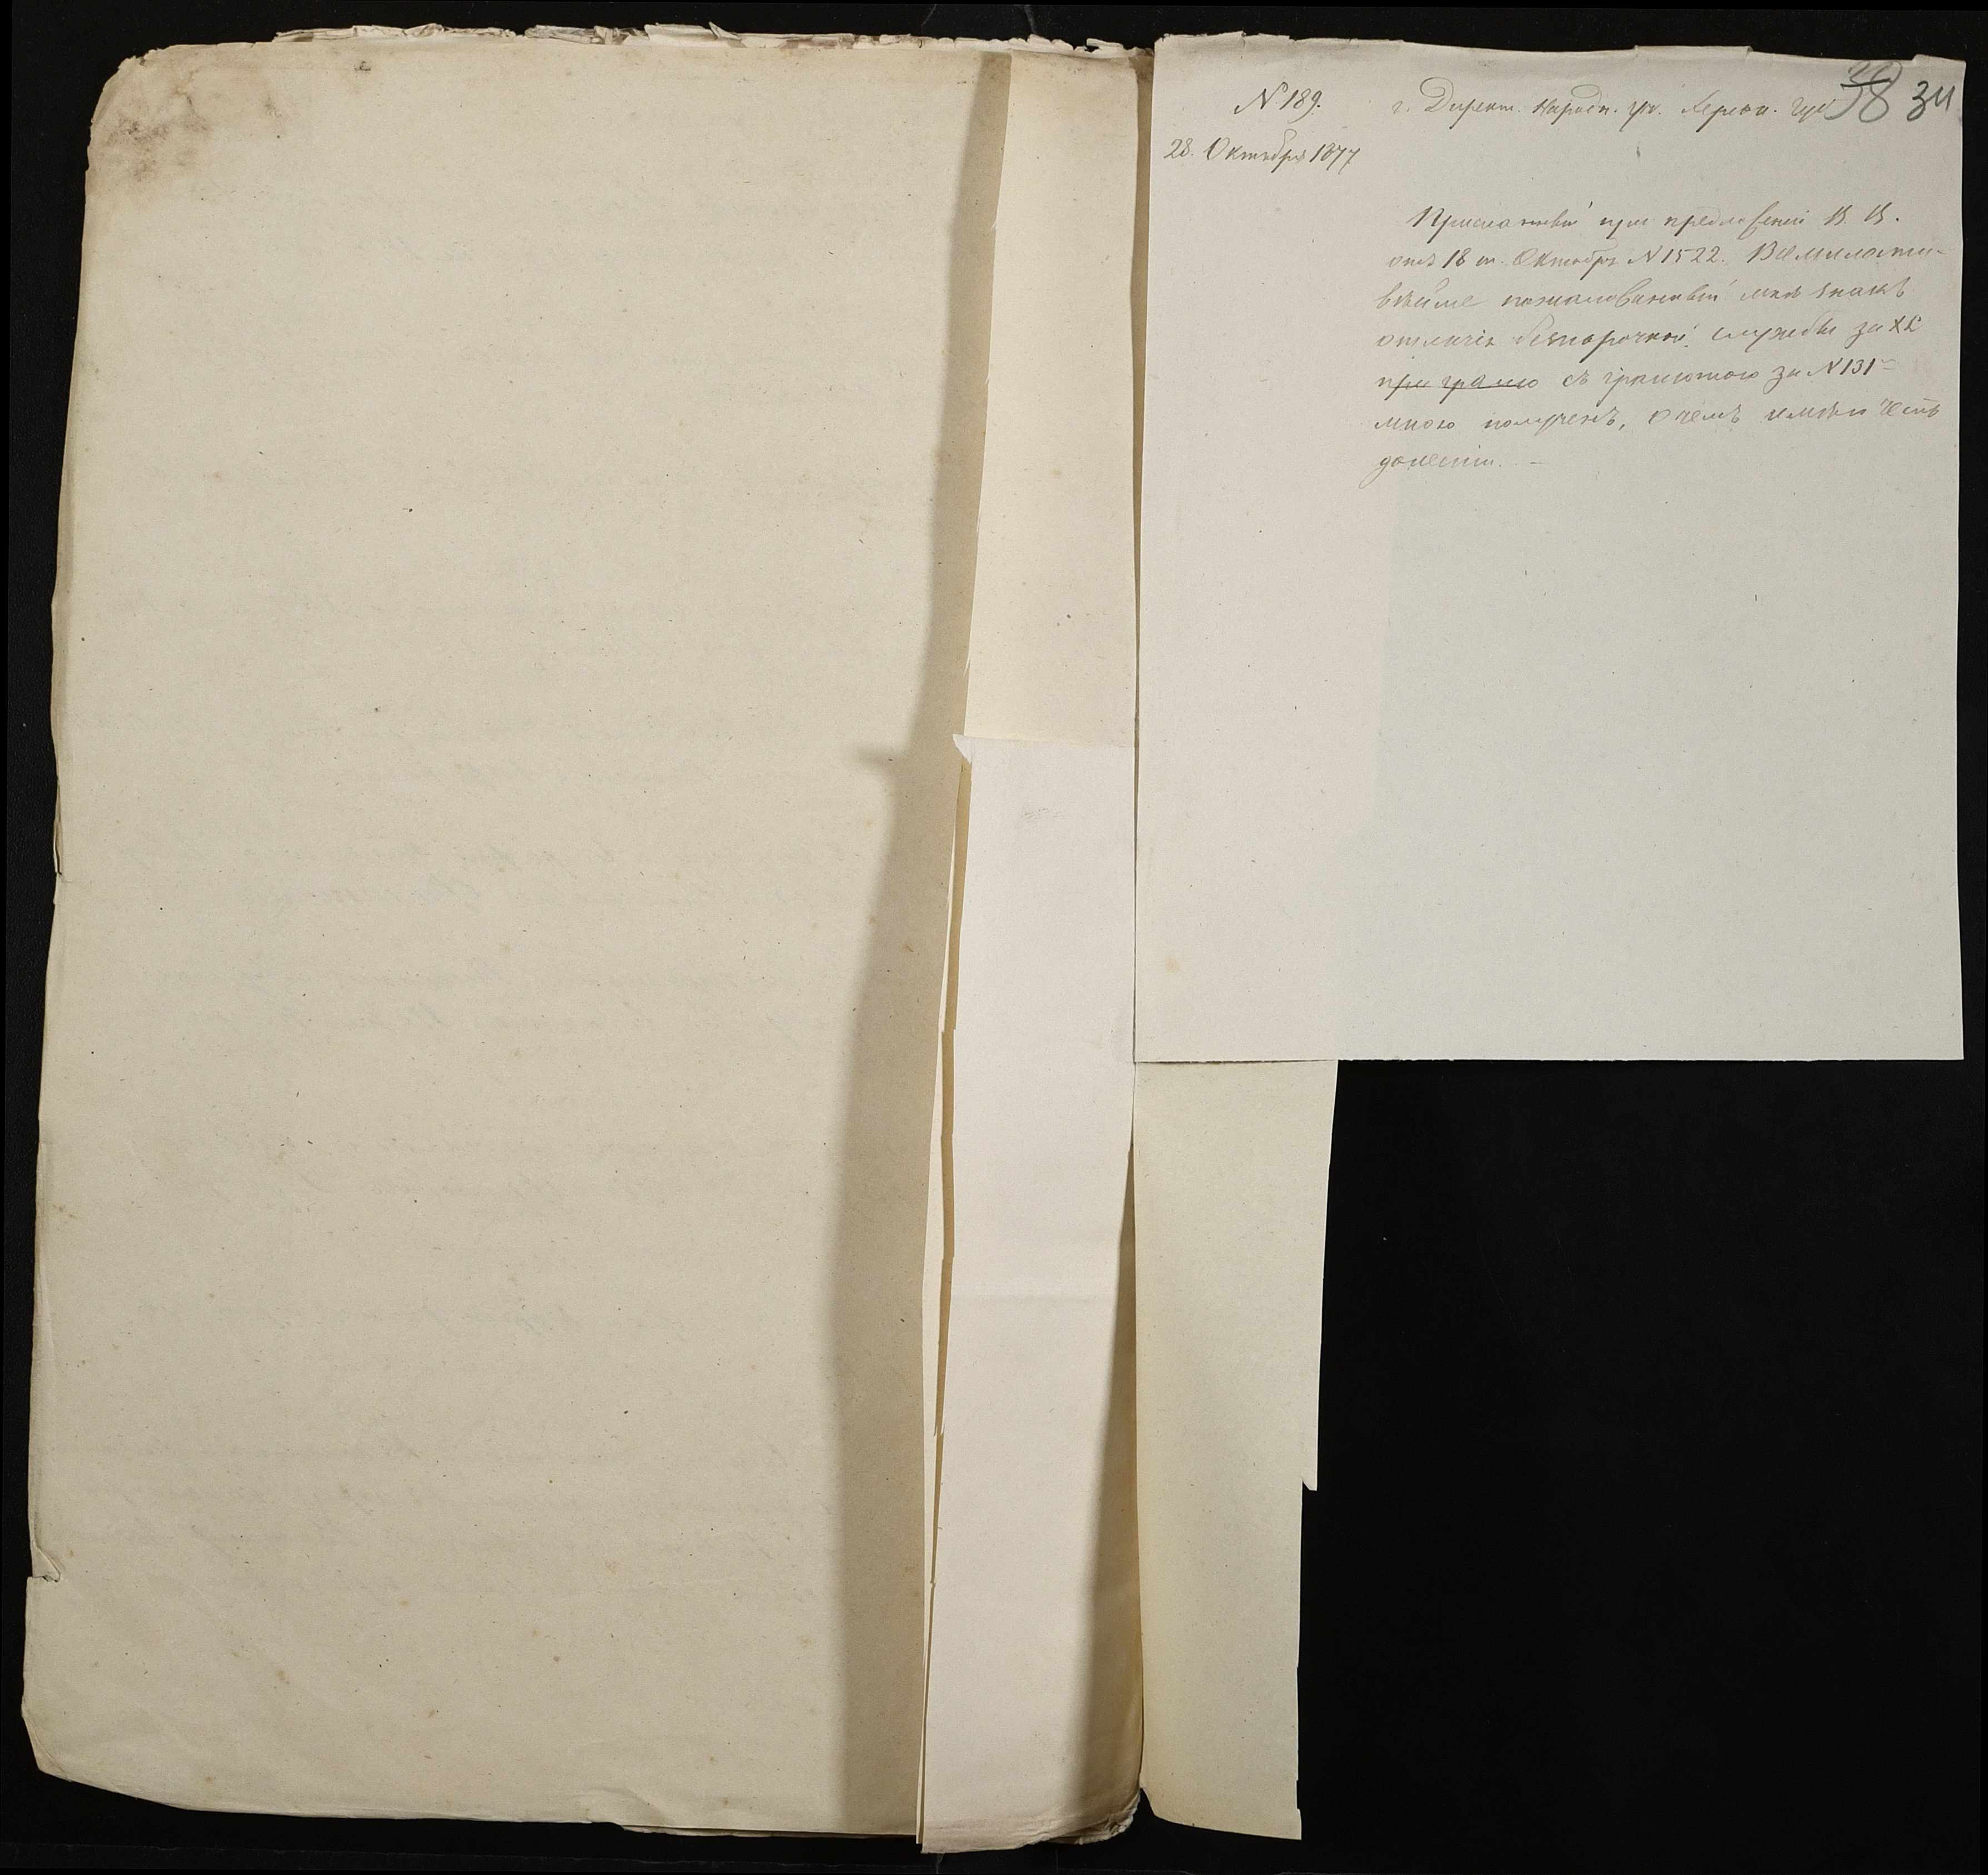 38 34
N 189.
28. Октября 1877
г. Директ. Народн. уч. Херсон. губ.
Присланный при предложеніи В. В.
отъ 18 т. Октября N 1522. Всемилости-
вѣйше пожалованный мнѣ знакъ
отличія безпорочной службы за XL
при грамо съ грамотою за N 131
мною полученъ, о чемъ имѣю честь
донести. —